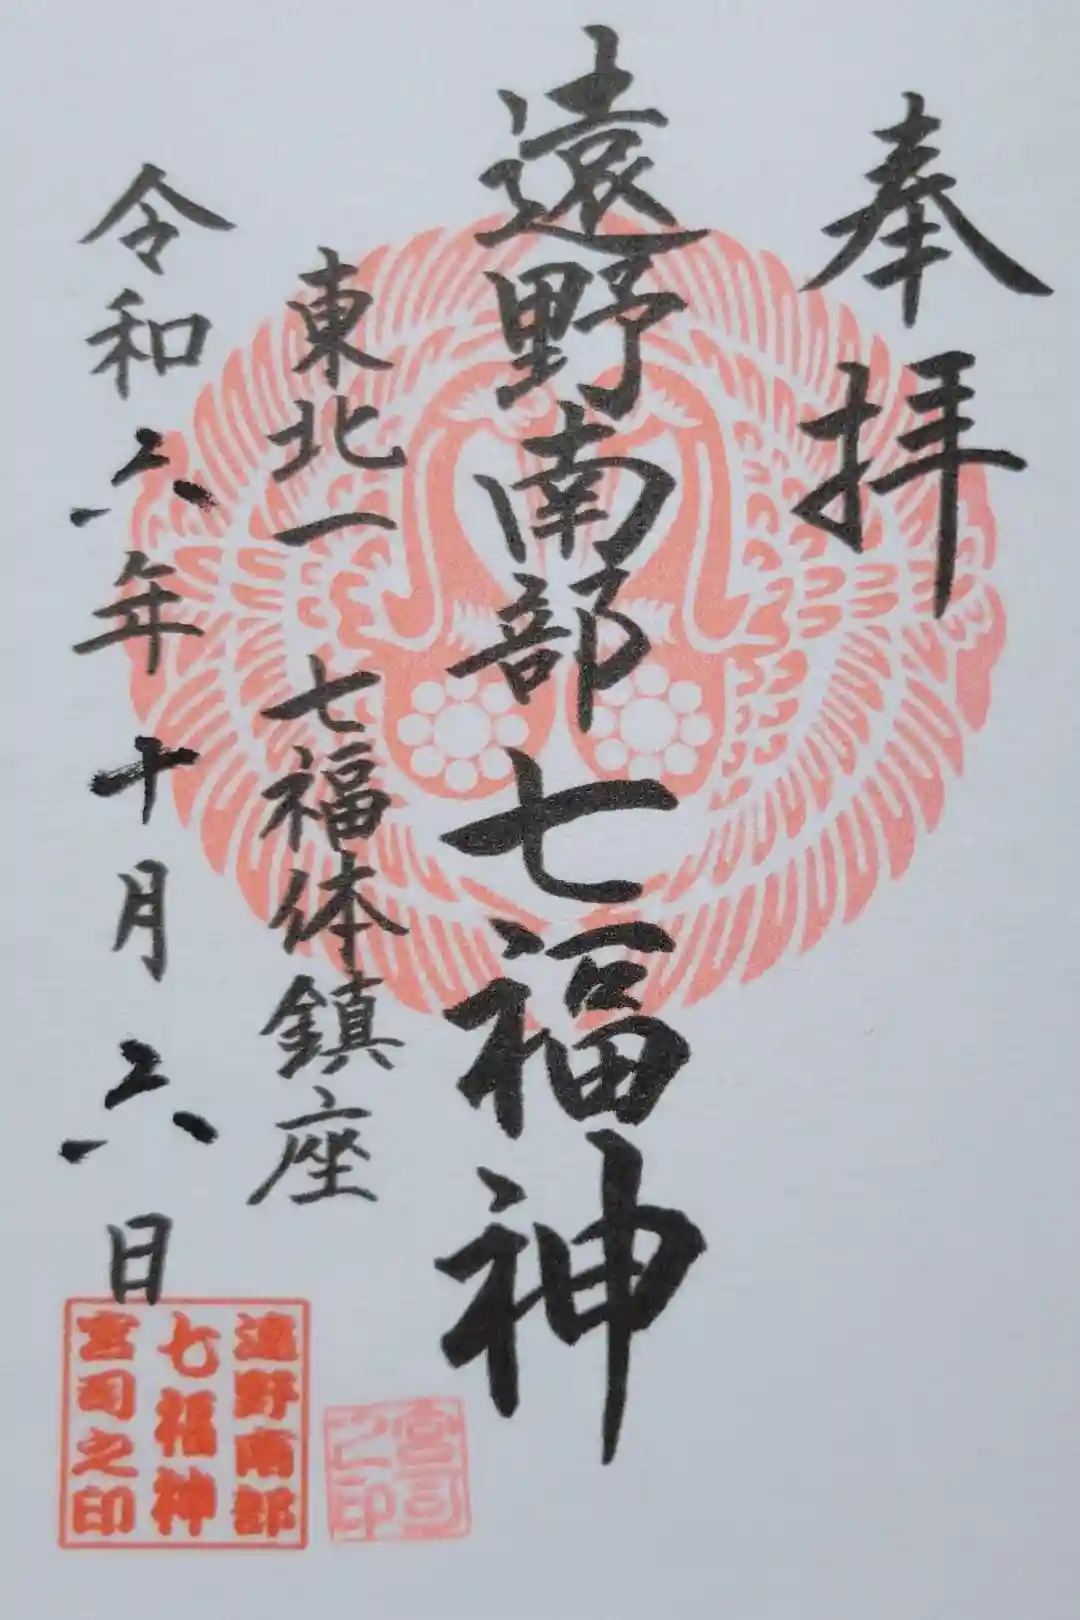 奉拝
遠野南部七福神
東北一 七福体鎮座
令和六年十月六日
遠野南部
七福神
宮司之印
宮司
之印